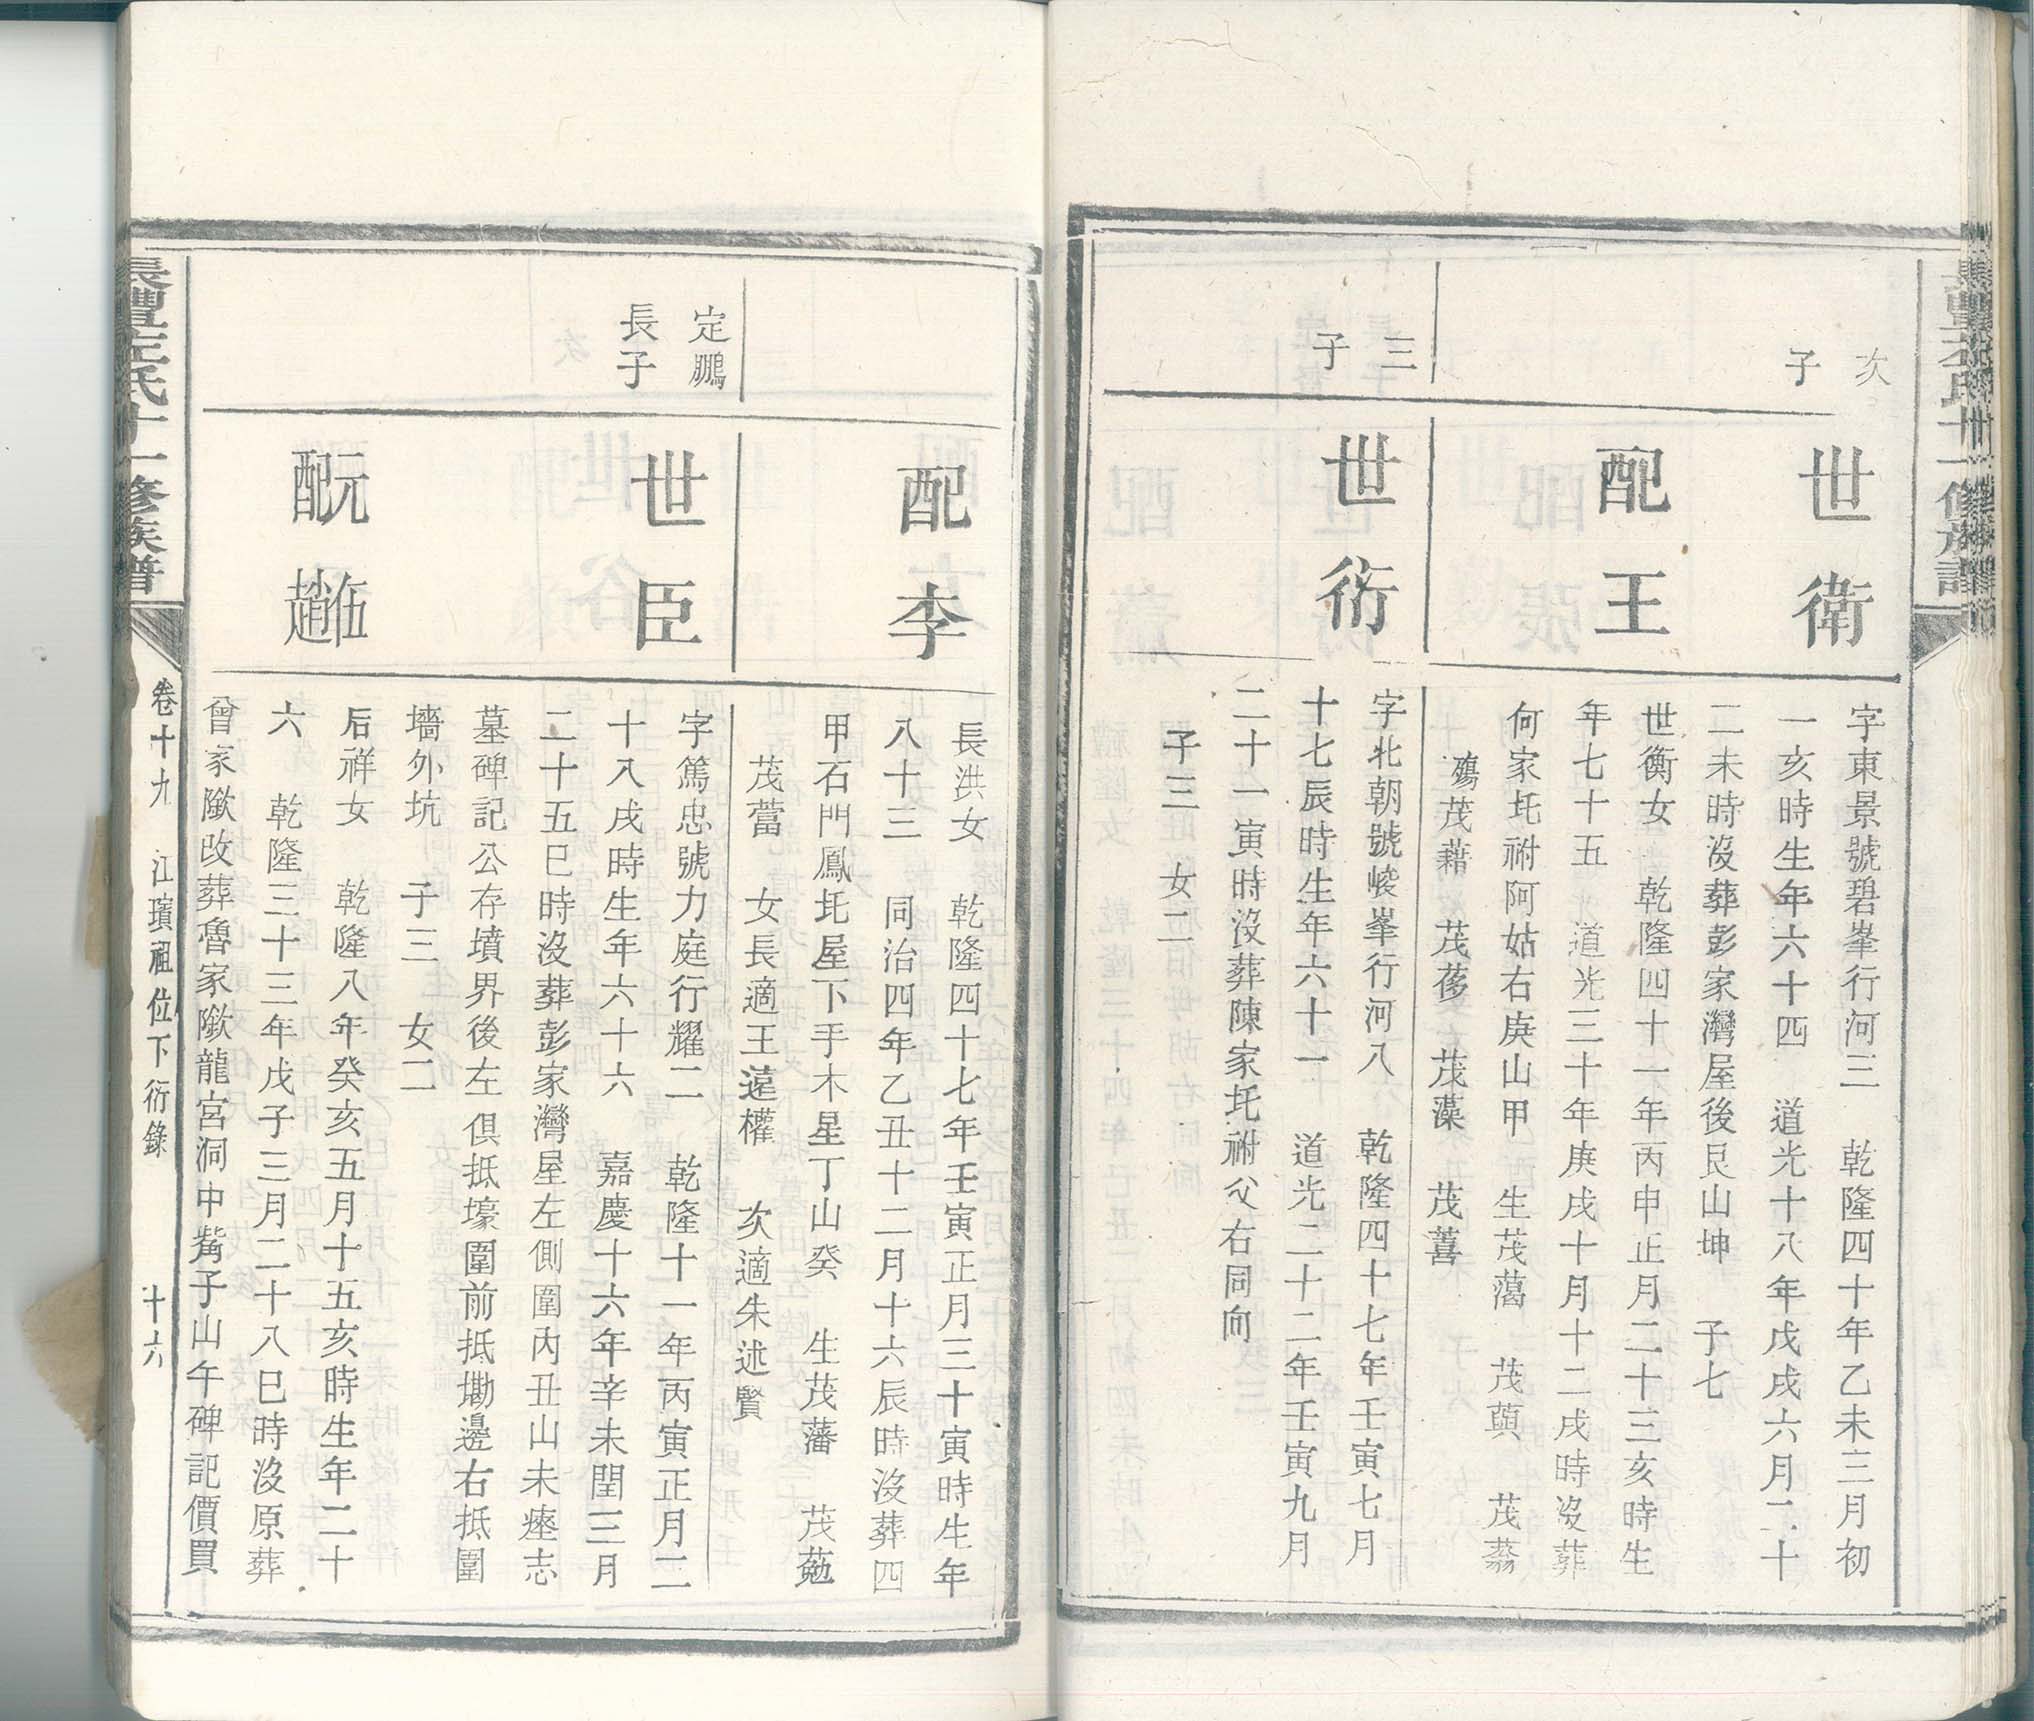 次
子
世衛
配王
字東景號碧峯行河三　乾隆四十年乙未三月初
一亥時生年六十四　道光十八年戊戌六月二十
二未時沒葬彭家灣屋後艮山坤　子七
世衡女　乾隆四十一年丙申正月二十三亥時生
年七十五　道光三十年庚戌十月十二戌時沒葬
何家坉祔阿姑右庚山甲　生茂藹　茂蕻　茂蓊
殤茂藉　茂蓚　茂藻　茂蓍
三
子
世衍
字北朝號峻峯行河八　乾隆四十七年壬寅七月
十七辰時生年六十一　道光二十二年壬寅九月
二十一寅時沒葬陳家坉祔父右同向
子三　女二
配李
長洪女　乾隆四十七年壬寅正月三十寅時生年
八十三　同治四年乙丑十二月十六辰時沒葬四
甲石門鳳坉屋下手木星丁山癸　生茂藩　茂葂
茂蕾　女長適王薳權　次適朱述賢
定鵬
長子
世臣
配元趙
配伍
字篤忠號力庭行耀二　乾隆十一年丙寅正月二
十八戌時生年六十六　嘉慶十六年辛未閏三月
二十五巳時沒葬彭家灣屋左側圍內丑山未瘞志
墓碑記公存墳界後左俱抵壕圍前抵墈邊右抵圍
墻外坑　子三　女二
后祥女　乾隆八年癸亥五月十五亥時生年二十
六　乾隆三十三年戊子三月二十八巳時沒原葬
曾家隞改葬魯家隞龍宮洞中觜子山午碑記價買
長豐左氏十一修族譜
卷十九　江璸祖位下衍錄　十六